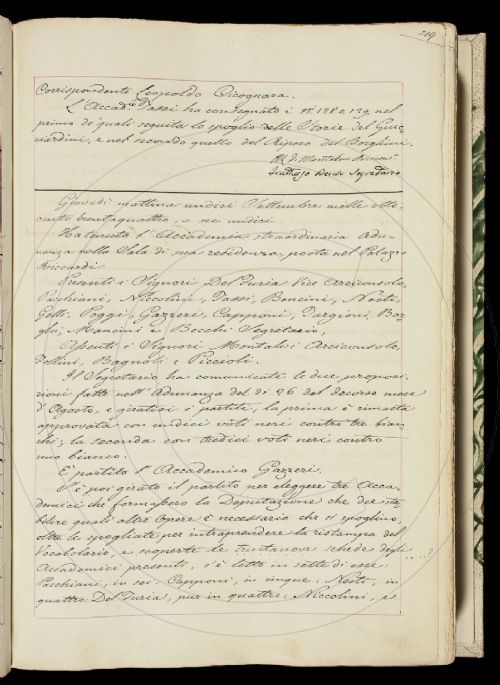 219
Corrispondente Leopoldo Cicognara.
L'Accad.co Tassi ha consegnato i N.i 128 e 129, nel
primo de' quali seguita lo spoglio delle Storie del Guic-
ciardini, e nel secondo quello del Riposo del Borghini.
Segretario
Giovedì mattina undici Settembre mille otto-
cento ventiquattro, a ore undici
Ha tenuta l'Accademia straordinaria Adu-
nanza nella Sala di sua residenza, posta nel Palazzo
Riccardi
Presenti i Signori Del Furia Vice Arciconsolo,
Pacchiani, Niccolini, Tassi, Bencini, Nesti,
Gelli, Poggi, Gazzeri, Capponi, Targioni, Bor-
ghi, Mancini e Becchi Segretario,
Assenti i Signori Montalvi Arciconsolo,
Follini, Bagnoli e Piccioli.
Il Segretario ha comunicate le due proposi-
zioni fatte nell'Adunanza del dì 26 del decorso mese
d'Agosto, e giratisi i partiti, la prima è rimasta
approvata con undici voti neri contro tre bian-
chi; la seconda con tredici voti neri contro
uno bianco.
È partito l'Accademico Gazzeri.
S'è poi girato il partito per eleggere tre Acca-
demici che formassero la Deputazione che dee sta-
bilire quali altre Opere è necessario che si spoglino,
oltre le spogliate per intraprendere la ristampa del
Vocabolario, e scoperte le trentanove schede degli
Accademici presenti, s'è letto in sette di esse:
Pacchiani, in sei: Capponi, in cinque: Nesti, in
quattro: Del Furia, pur in quattro: Niccolini, e